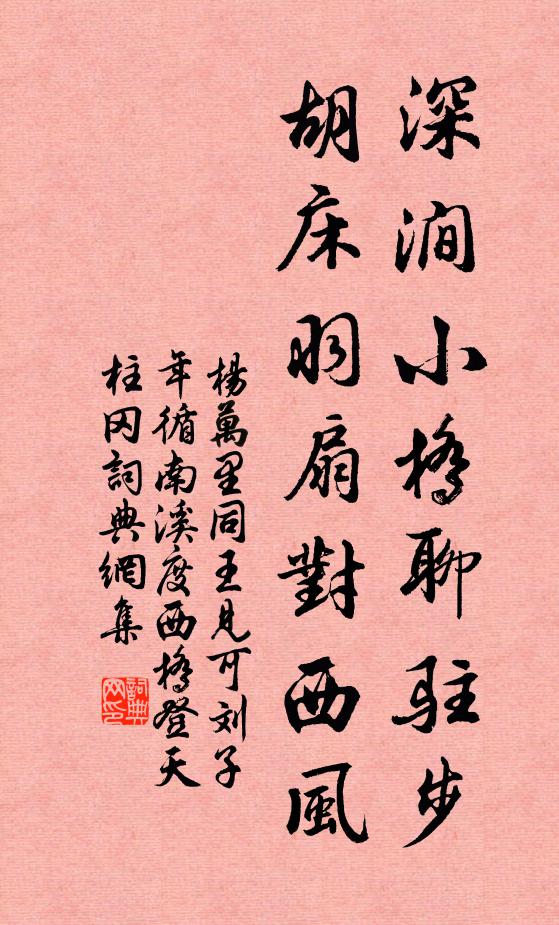 深澗小橋聊駐步
胡床羽扇對西風
楊萬里同王見可刘子
年循南溪度西橋登天
柱冈詞典網集
詞典网印